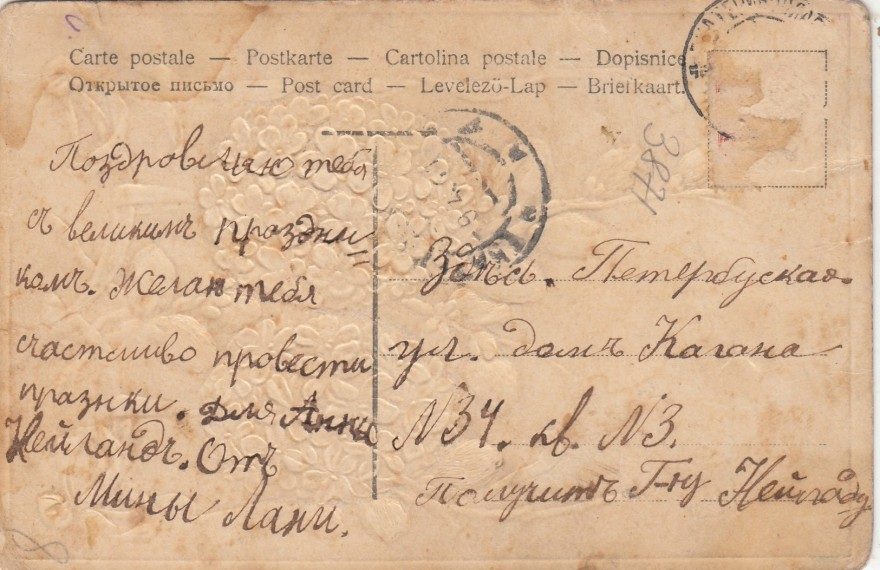 Carte postale — Postkarte — Cartolina postale — Dopisnice
Открытое письмо — Post card — Levelező-Lap — Briefkaart.
3871
Поздровляю тебя
съ великимъ праздни
комъ. Желаю тебя
счастливо провести
празнки. для Анни
Нейландъ. Отъ
Мины Лани.
Здѣсь. Петербуская
ул. домъ Кагана
N34. кв. N3.
Получить Г-ну